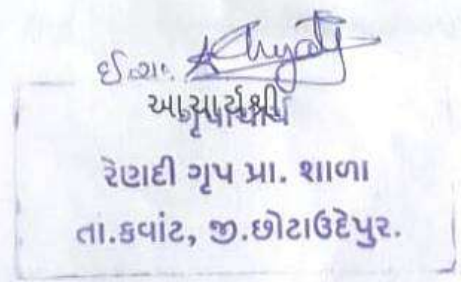 ઈ.ચા.
આચાર્યશ્રી
રેણદી ગૃપ પ્રા. શાળા
તા.કવાંટ, જી.છોટાઉદેપુર.